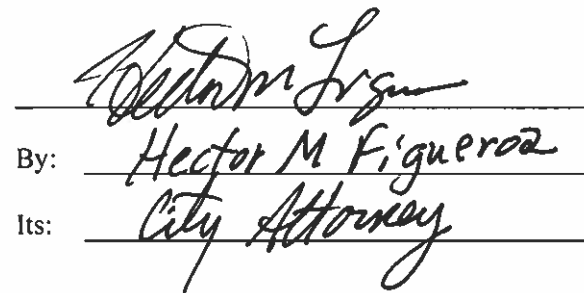 Hector M
By: Hector M Figueroa
Its: City Attorney